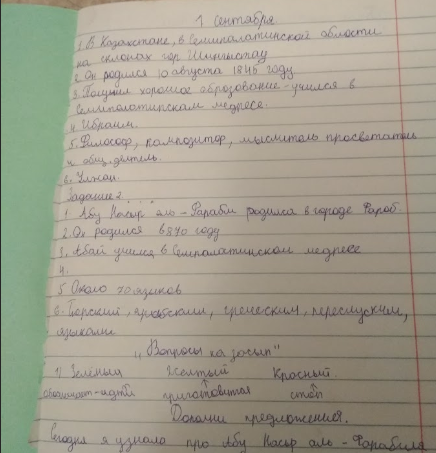 1 Сентября
1. В Казахстане, в Семипалатинской области
на склонах гор Шынгыстау
2. Он родился 10 августа 1845 году
3. Получил хорошое образование - учился в
Семипалатинскам медресе.
4. Ибраим.
5. Философ, композитор, мыслитель просветитель
и общ. деятель.
6. Улжан.
Задание 2....
1. Абу Насыр аль - Фараби родился в городе Фараб.
2. Он родился в 870 году
3. Абай учился в Семпалатинском медресе
4.
5. Около 70 языков
6. арабским, греческим,
языками
„Вопросы на засып"
1) Зелёный Желтый Красный
идти приготовится стоп
Дополни предложения.
Сегодня я узнала про Абу Насыр аль - Фараби